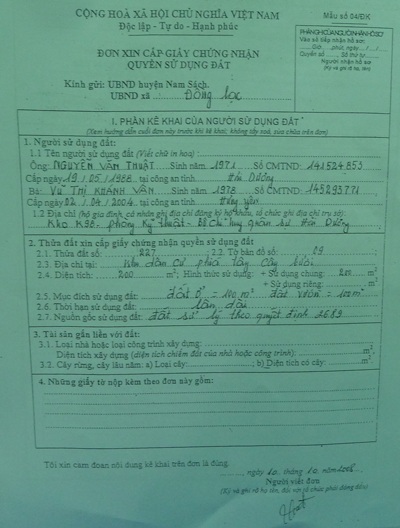 CỘNG HOÀ XÃ HỘI CHỦ NGHĨA VIỆT NAM
Độc lập - Tự do - Hạnh phúc
Mẫu số 04/ĐK
ĐƠN XIN CẤP GIẤY CHỨNG NHẬN
QUYỀN SỬ DỤNG ĐẤT
PHẦN GHI CỦA NGƯỜI NHẬN HỒ SƠ
Vào sổ tiếp nhận hồ sơ:
Giờ.... phút, ngày..../..../....
Quyển số...... Số thứ tự......
Người nhận hồ sơ
(Ký và ghi rõ họ, tên)
Kính gửi: UBND huyện Nam Sách.
UBND xã: Đồng Lạc
I. PHẦN KÊ KHAI CỦA NGƯỜI SỬ DỤNG ĐẤT
(Xem hướng dẫn cuối đơn này trước khi kê khai; không tẩy xoá, sửa chữa trên đơn)
1. Người sử dụng đất:
1.1 Tên người sử dụng đất (Viết chữ in hoa):
Ông: NGUYỄN VĂN THUẬT Sinh năm 1971 Số CMTND: 141524853
Cấp ngày 19/05/1988 tại công an tỉnh Hải Dương
Bà: VŨ THỊ KHÁNH VÂN Sinh năm 1978 Số CMTND: 145293771
Cấp ngày 22/04/2004 tại công an tỉnh Hưng Yên
1.2 Địa chỉ (hộ gia đình, cá nhân ghi địa chỉ đăng ký hộ khẩu, tổ chức ghi địa chỉ trụ sở):
Kho K98 - phòng kỹ thuật - Bộ Chỉ huy quân sự Hải Dương
2. Thửa đất xin cấp giấy chứng nhận quyền sử dụng đất
2.1. Thửa đất số: 227 2.2. Tờ bản đồ số: 09
2.3. Địa chỉ tại: Khu dân cư phía tây cây
2.4. Diện tích: 200 m²; Hình thức sử dụng: + Sử dụng chung: 200 m²
+ Sử dụng riêng: m²
2.5. Mục đích sử dụng đất: đất ở = 100 m² đất vườn = 100 m²
2.6. Thời hạn sử dụng đất: lâu dài
2.7. Nguồn gốc sử dụng đất: đất xử lý theo quyết định 2689
3. Tài sản gắn liền với đất:
3.1. Loại nhà hoặc loại công trình xây dựng: m²
Diện tích xây dựng (diện tích chiếm đất của nhà hoặc công trình): m²
3.2. Cây rừng, cây lâu năm: a) Loại cây: b) Diện tích có cây: m²
4. Những giấy tờ nộp kèm theo đơn này gồm:
Tôi xin cam đoan nội dung kê khai trên đơn là đúng.
, ngày 10 tháng 10 năm 2008
Người viết đơn
(Ký và ghi rõ họ tên, đối với tổ chức phải đóng dấu)